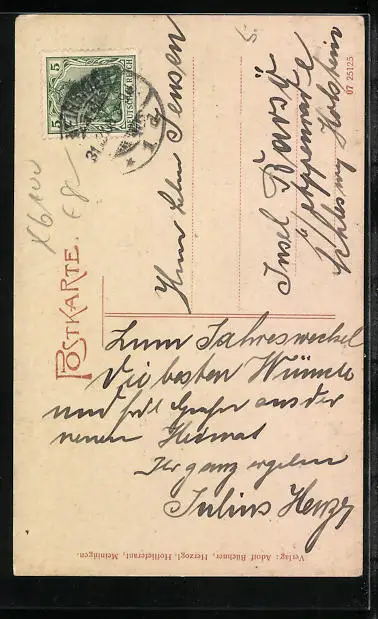 POSTKARTE.
5 DEUTSCHES REICH 5
MEININGEN
31.
1
Herrn
Jensen
Insel Barsö
Schleswig Holstein
Zum Jahreswechsel
die besten Wünsche
und Grüße aus der
neuen Heimat
Ihr ganz ergebener
Julius
07 25125
Verlag: Adolf Büchner, Herzogl. Hoflieferant, Meiningen.